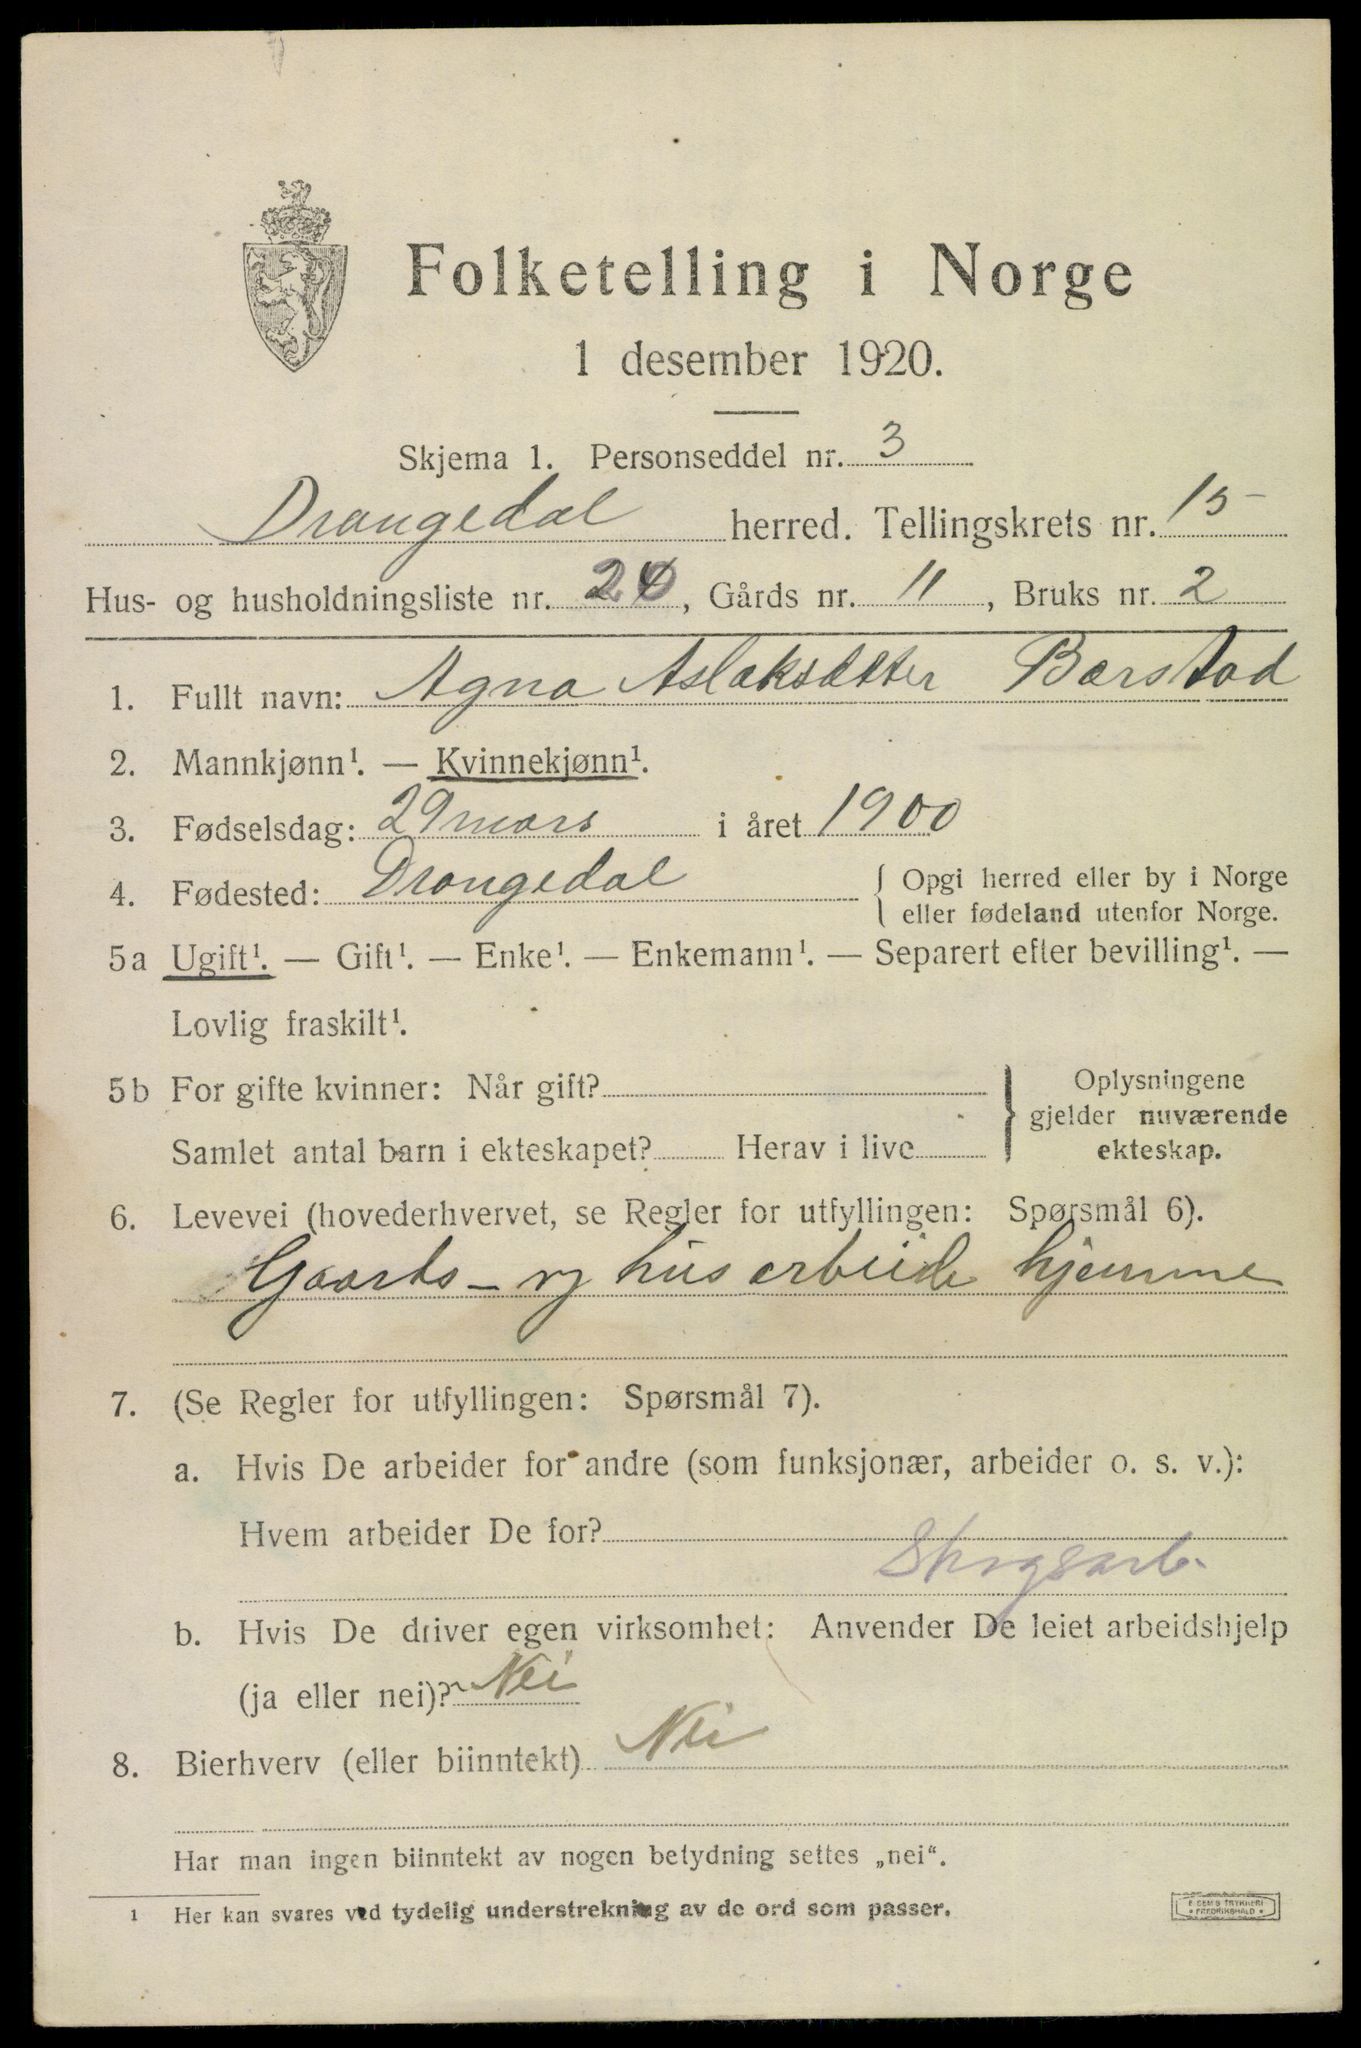 Folketelling i Norge
1 desember 1920.
Skjema 1. Personseddel nr. 3
Drangedal herred. Tellingskrets nr. 15
Hus- og husholdningsliste nr. 20, Gårds nr. 11, Bruks nr. 2
1. Fullt navn: Agna Aslaksdatter Bærstad
2. Mannkjønn¹. — Kvinnekjønn¹.
3. Fødselsdag: 29 mars i året 1900
4. Fødested: Drangedal { Opgi herred eller by i Norge
eller fødeland utenfor Norge.
5a Ugift¹. — Gift¹. — Enke¹. — Enkemann¹. — Separert efter bevilling¹. —
Lovlig fraskilt¹.
5b For gifte kvinner: Når gift?
Samlet antal barn i ekteskapet? Herav i live
} Oplysningene
gjelder nuværende
ekteskap.
6. Levevei (hovederhvervet, se Regler for utfyllingen: Spørsmål 6).
Gaards- og husarbeide hjemme
7. (Se Regler for utfyllingen: Spørsmål 7).
a. Hvis De arbeider for andre (som funksjonær, arbeider o. s. v.):
Hvem arbeider De for?
Skogsarb.
b. Hvis De driver egen virksomhet: Anvender De leiet arbeidshjelp
(ja eller nei)? Nei
8. Bierhverv (eller biinntekt) Nei
Har man ingen biinntekt av nogen betydning settes „nei“.
¹ Her kan svares ved tydelig understrekning av de ord som passer.